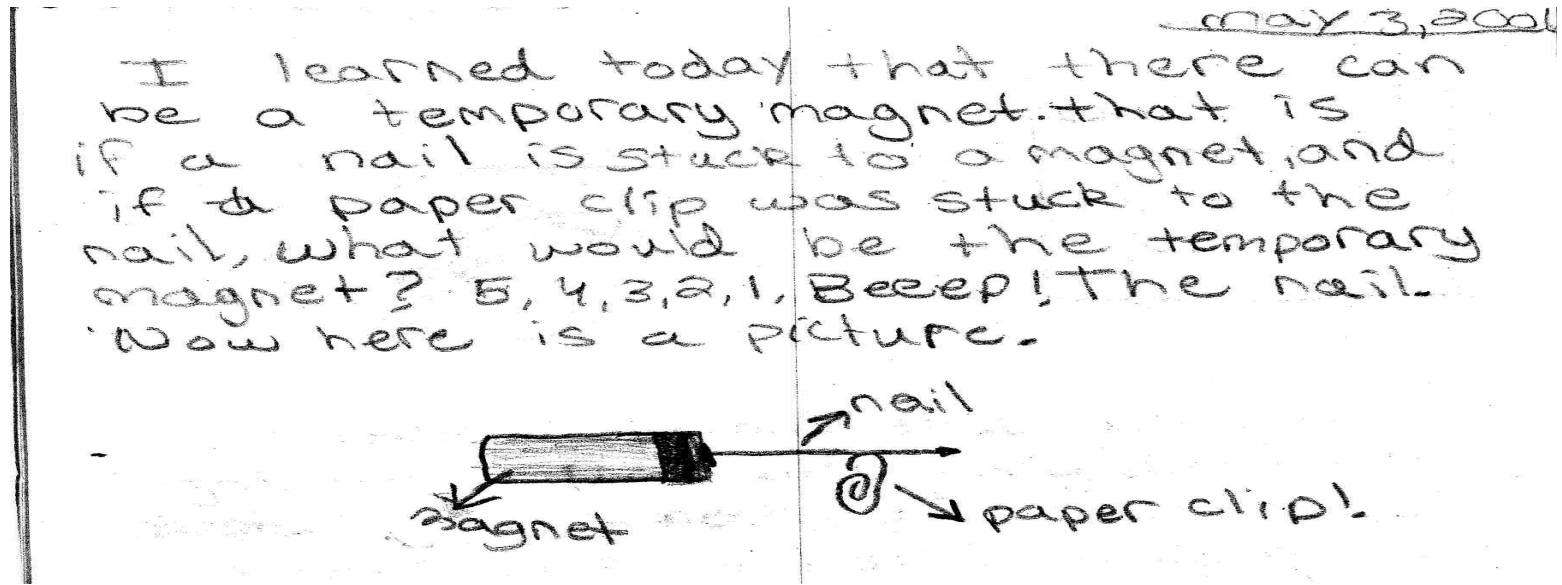 may 3, 2001
I learned today that there can
be a temporary magnet. that is
if a nail is stuck to a magnet, and
if a paper clip was stuck to the
nail, what would be the temporary
magnet? 5, 4, 3, 2, 1, Beeep! The nail.
Now here is a picture.
nail
magnet
paper clip!